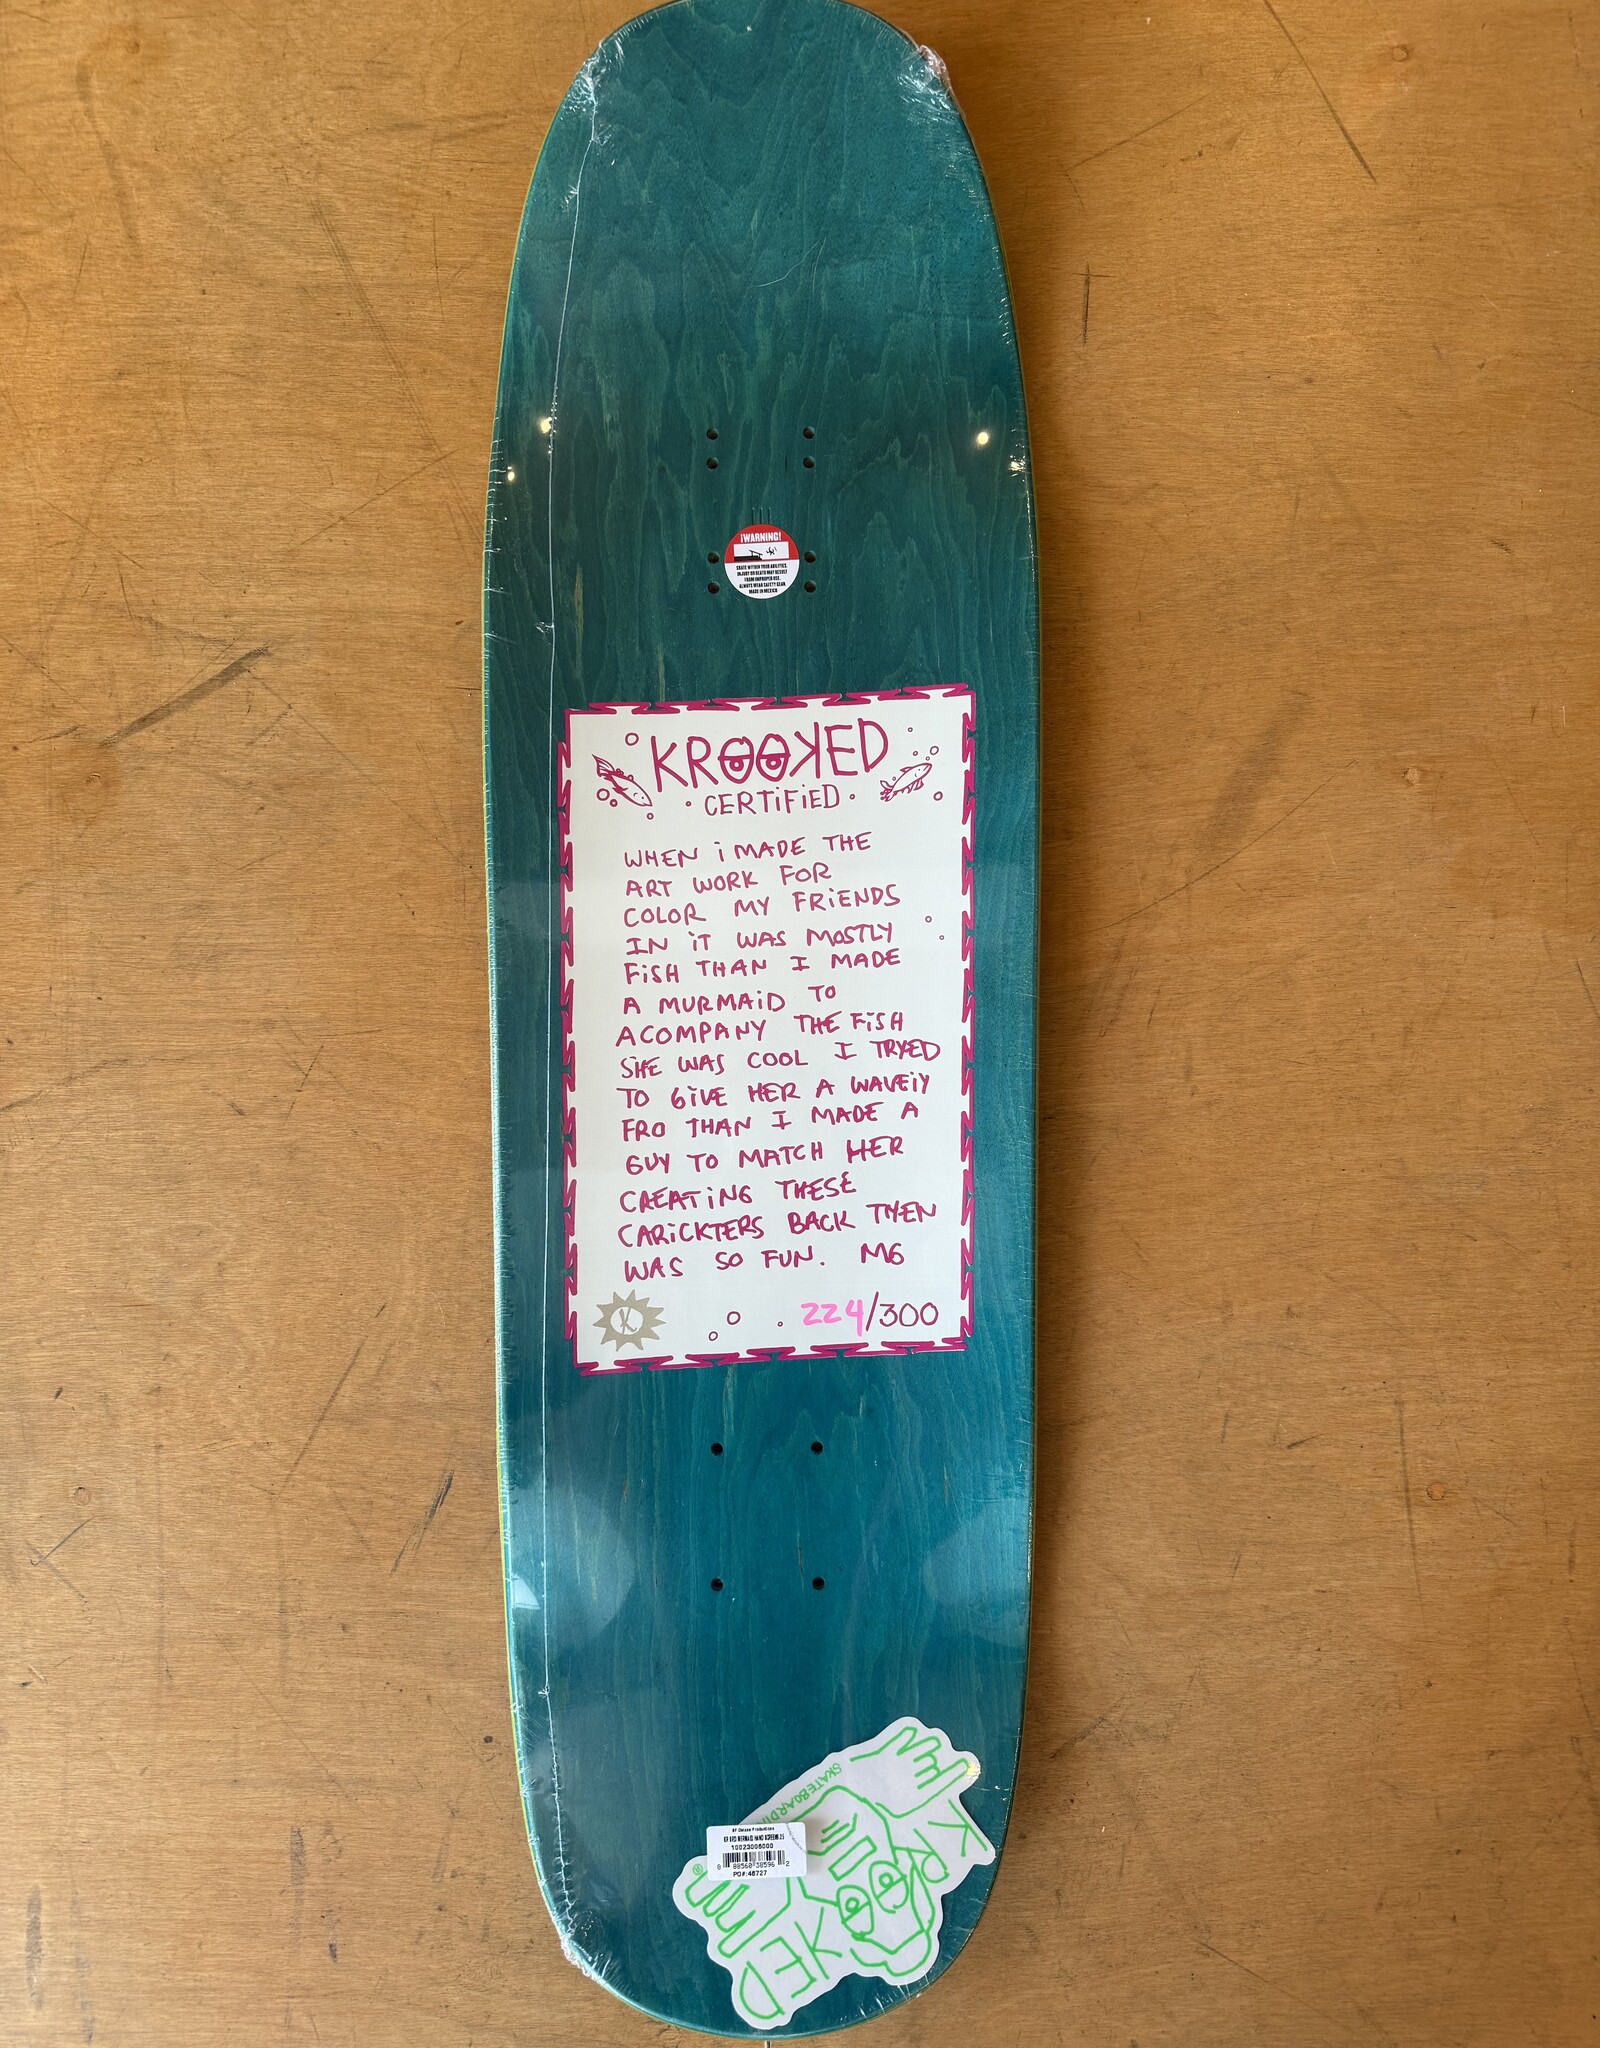 ¡WARNING!
SKATE WITHIN YOUR ABILITIES.
INJURY OR DEATH MAY RESULT
FROM IMPROPER USE.
ALWAYS WEAR SAFETY GEAR
MADE IN MEXICO
KROOKED
CERTiFiED
WHEN i MADE THE
ART WORK FOR
COLOR MY FRiENDS
IN iT WAS MOSTLY
FiSH THAN I MADE
A MURMAiD TO
ACOMPANY THE FiSH
SHE WAS COOL I TRYED
TO GiVE HER A WAVEiY
FRO THAN I MADE A
GUY TO MATCH HER
CREATiNG THESE
CARiCKTERS BACK THEN
WAS SO FUN. MG
K
224/300
SKATEBOARDI
KR
KED
®
10023006000
0 88560 38596 2
PO#:46727